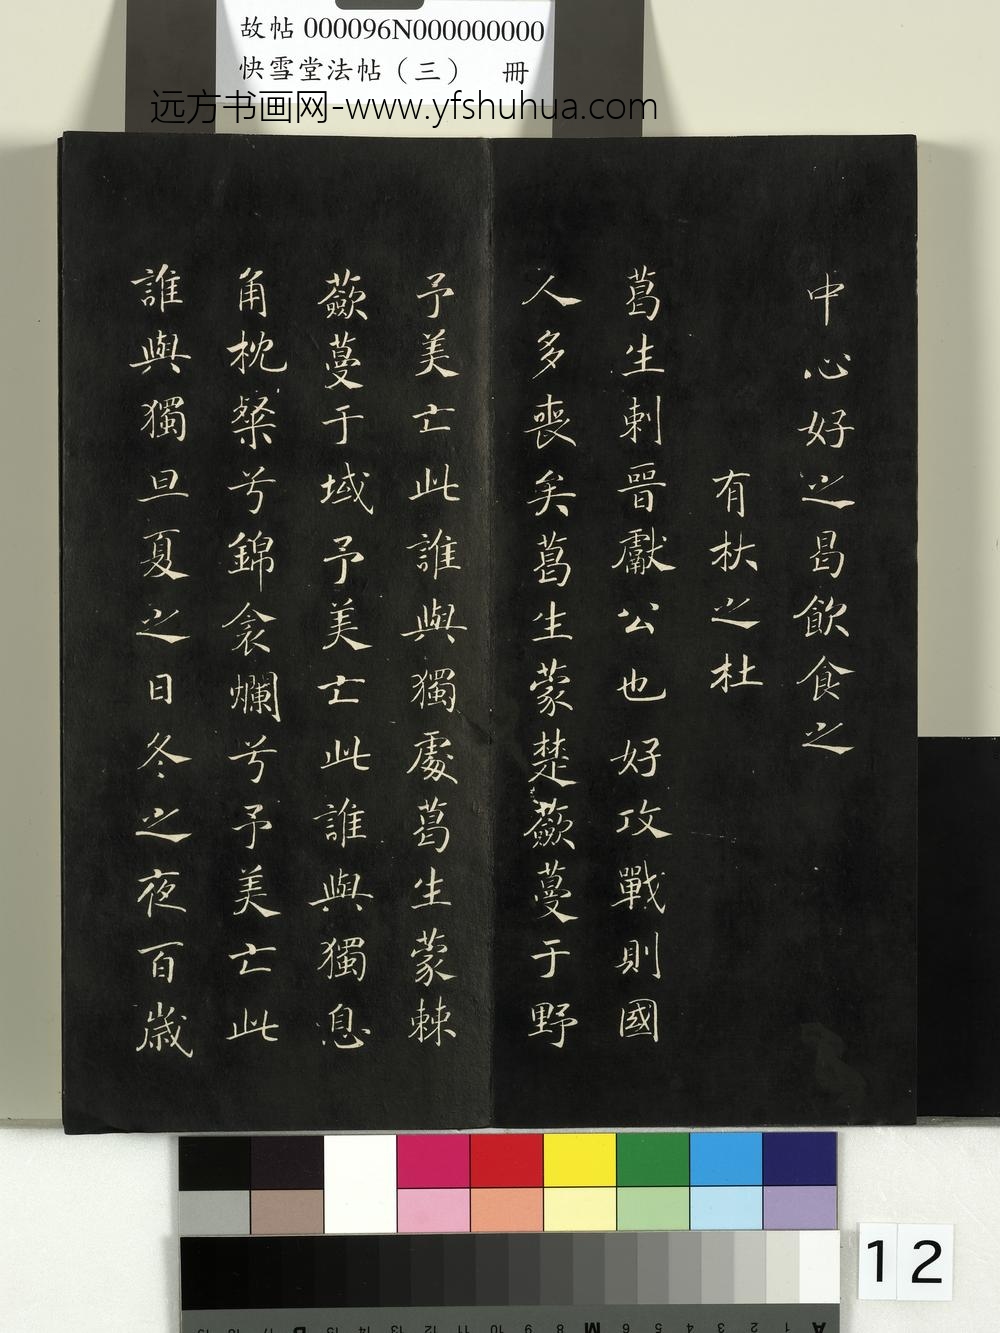 故帖 000096N000000000
快雪堂法帖（三） 冊
远方书画网-www.yfshuhua.com
中心好之曷飲食之
有杕之杜
葛生刺晉獻公也好攻戰則國
人多喪矣葛生蒙楚蘞蔓于野
予美亡此誰與獨處葛生蒙棘
蘞蔓于域予美亡此誰與獨息
角枕粲兮錦衾爛兮予美亡此
誰與獨旦夏之日冬之夜百歲
12